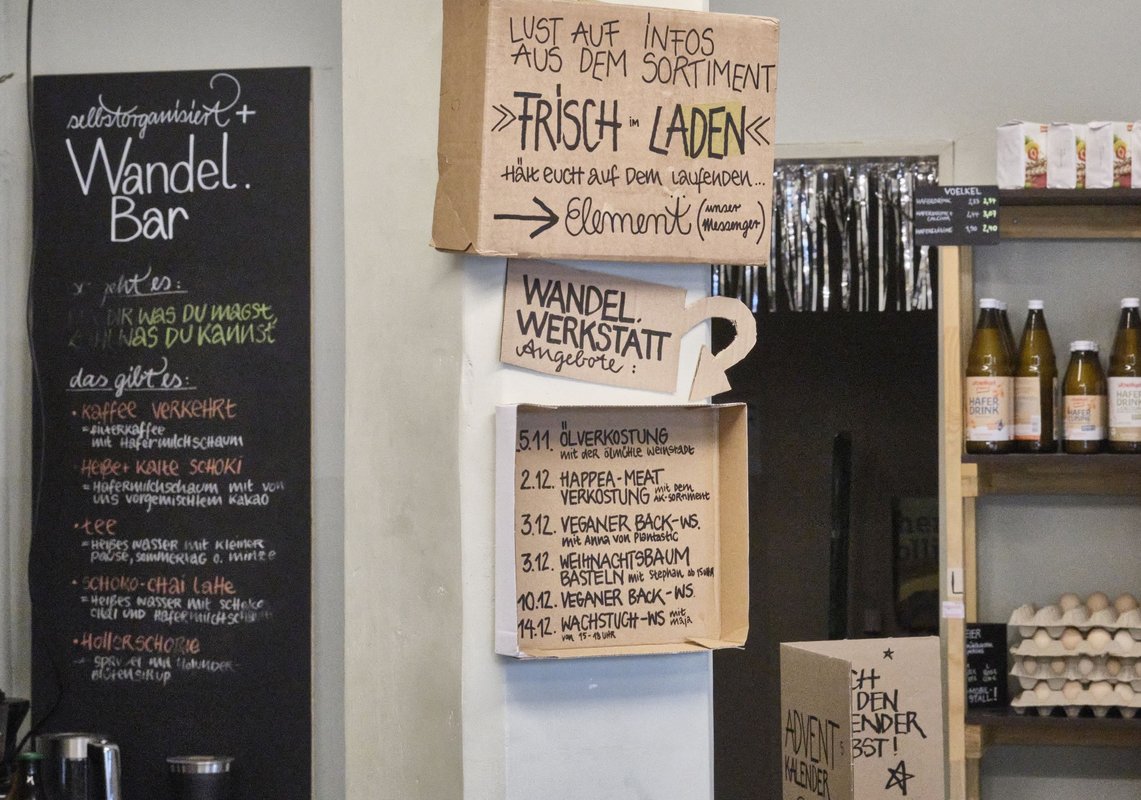 selbstorganisiert +
Wandel.
Bar
geht es:
WAS DU MAGST,
WAS DU KANNST
das gibt es:
• KAFFEE VERKEHRT
= Filterkaffee
mit Hafermilchschaum
• Heiße + Kalte SCHOKI
= Hafermilchschaum mit von
uns vorgemischtem Kakao
• Tee
= Heißes Wasser mit kleiner
Pause, Sommertag o. Minze
• SCHOKO-CHAI Latte
= Heißes Wasser mit Schoko
Chai und Hafermilchsch
• Hollerschorle
Sprudel mit Holunder-
blütensirup
LUST AUF INFOS
AUS DEM SORTIMENT
»FRISCH im LADEN«
Hält euch auf dem Laufenden...
→ Element (unser Messenger)
WANDEL.
WERKSTATT
Angebote:
5.11. ÖLVERKOSTUNG
mit der Ölmühle Weinstadt
2.12. HAPPEA-MEAT
VERKOSTUNG mit dem AK-Sortiment
3.12. VEGANER BACK-WS.
mit Anna von Plantastic
3.12. WEIHNACHTSBAUM
BASTELN mit Stephan ab 15 UHR
10.12. VEGANER BACK-WS.
14.12. WACHSTUCH-WS mit Maja
von 15-18 UHR
VOELKEL
HAFERDRINK
HAFERDRINK +
CALCIUM
HAFERCUISINE
HAFER
DRINK
HAFER
CUISINE
HAFER
DRINK
EIER
ADVENT S
KALENDER
CH
DEN
ENDER
BST!